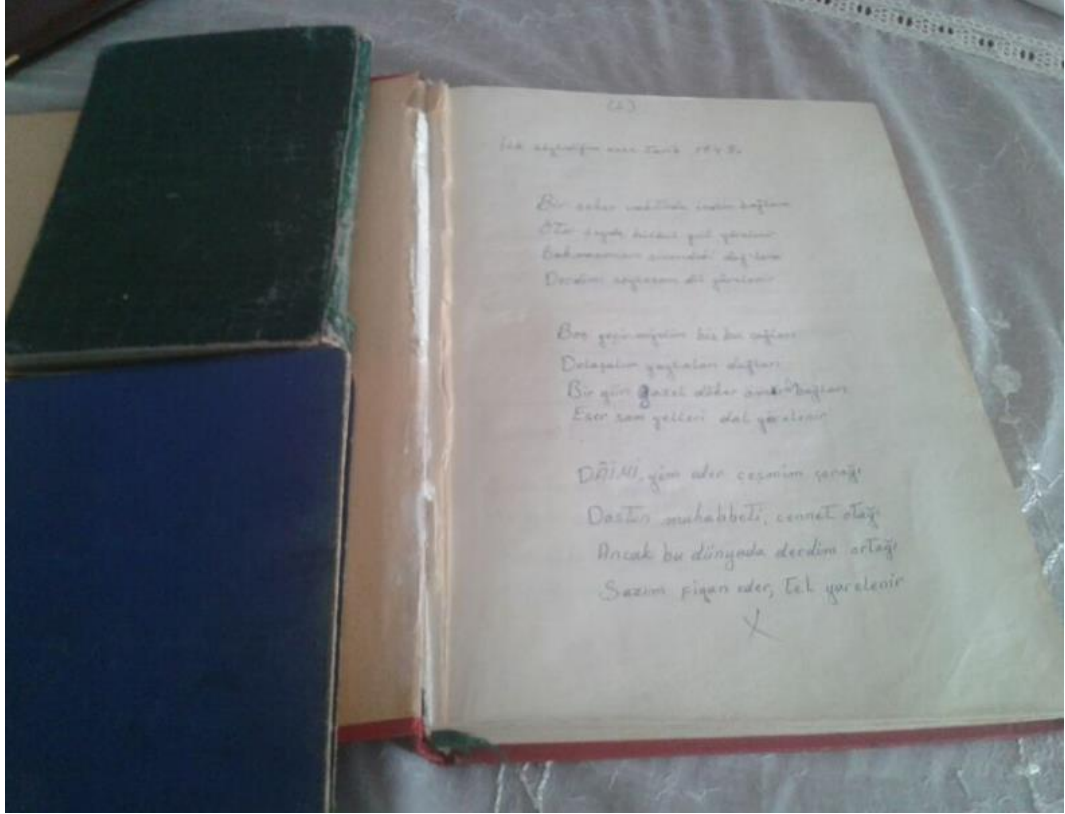 (1)
İlk söylediğim eser Tarih 1948.
Bir seher vaktinde indim bağlara
Öter şeyda bülbül gül yârelenir
Bakamaman dağlara
Derdimi söylesem dil yârelenir
Boş geçirmiyelim biz bu çağları
Dolaşalım yaylaları dağları
Bir gün gazel döker bağları
Eser sam yelleri dal yârelenir
DÂİMİ, yim eder çeşmim çerağı
Dostun muhabbeti, cennet otağı
Ancak bu dünyada derdim ortağı
Sazım figan eder, tel yarelenir
X